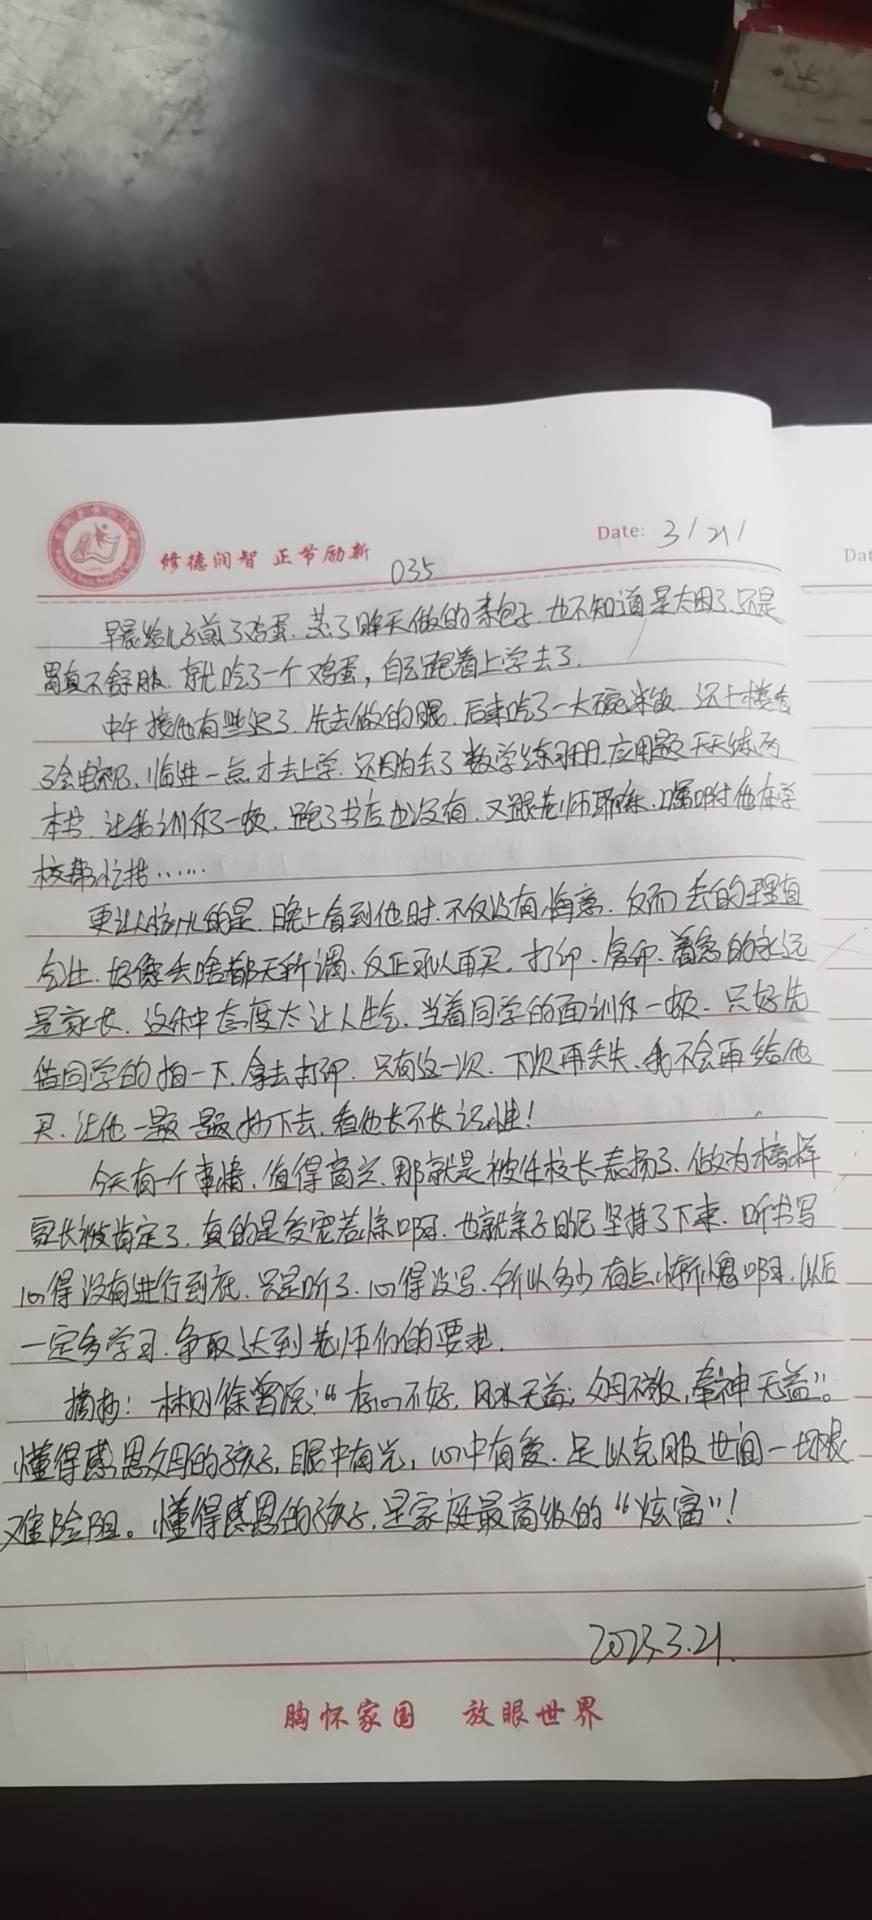 修德润智 正节励新
Date: 3/21/
035
早晨给儿子煎了鸡蛋、蒸了昨天做的素包子、也不知道是太困了、还是
胃真不舒服、就吃了一个鸡蛋，自己跑着上学去了.
中午接他有些迟了、先去做的眼、后来吃了一大碗米饭、还上楼看
了会电视、临进一点才去上学、还因为丢了数学练习册、应用题天天练两
本书、让我训斥了一顿、跑了书店也没有、又跟老师联系、嘱咐他在学
校帮忙找……
更让人的是、晚上看到他时、不仅没有悔意、反而丢的理直
气壮、好像丢啥都无所谓、反正可以再买、打印、复印、着急的永远
是家长、这种态度太让人生气、当着同学的面训斥一顿、只好先
借同学的拍一下、拿去打印、只有这一次、下次再丢失、我不会再给他
买、让他一题一题抄下去、看他长不长记性！
今天有一个事情、值得高兴、那就是被任校长表扬了、做为榜样
家长被肯定了、真的是受宠若惊啊、也就亲子日记坚持了下来、听书写
心得没有进行到底、只是听了、心得没写、所以多少有点惭愧啊、以后
一定多学习、争取达到老师们的要求.
摘抄：林则徐曾说：“存心不好，风水无益；父母不敬，奉神无益”。
懂得感恩父母的孩子，眼中有光，心中有爱、足以克服世间一切艰
难险阻。懂得感恩的孩子、是家庭最高级的“炫富”！
2023.3.21.
胸怀家国 放眼世界